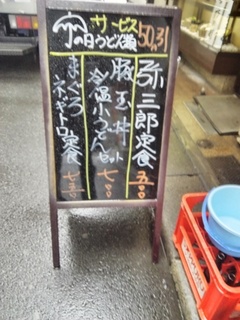 サービス
の日うどん大鍋
50,31
弥三郎定食
五〇〇
豚玉丼
冷温小うどん
セット
七〇〇
まぐろ
ネギトロ定食
七五〇